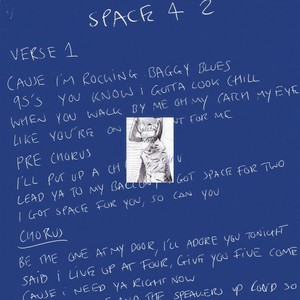 SPACE 4 2
VERSE 1
CAUSE I'M ROCKING BAGGY BLUES
95'S YOU KNOW I GOTTA LOOK CHILL
WHEN YOU WALK BY ME OH MY CATCH MY EYE
LIKE YOU'RE ON FOR ME
PRE CHORUS
I'LL PUT UP A
LEAD YA TO MY I GOT SPACE FOR TWO
I GOT SPACE FOR YOU, SO CAN YOU
CHORUS
BE THE ONE AT MY DOOR, I'LL ADORE YOU TONIGHT
SAID I LIVE UP AT FOUR, GIVE YOU FIVE COME
CAUSE I NEED YA RIGHT NOW
AND THE SPEAKERS UP LOUD SO